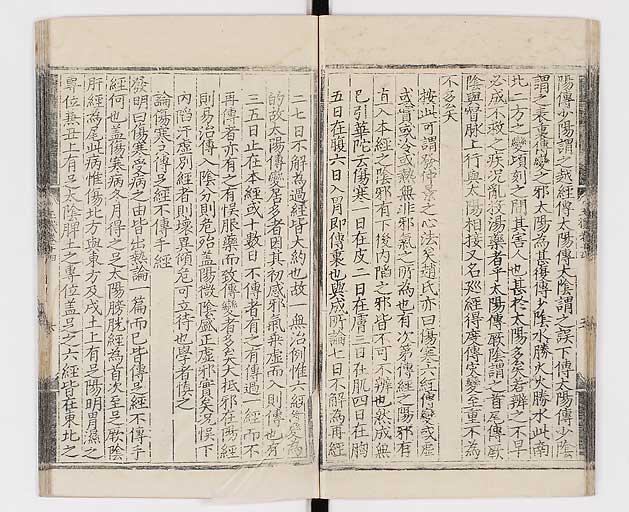 陽傳少陽謂之越經傳太陽傳太陰謂之誤下傳太陽傳少陰
謂之表裏傳變之邪太陽為甚復傳少陰水勝火火勝水此南
北二方之變頃刻之間其害人也甚於太陽多矣若辨之不早
必成不救之疾況亂投湯藥者乎太陽傳厥陰謂之首尾傳厥
陰與督脉上行與太陽相接又名廵經得度傳灾變至重不為
不多矣
按此可謂發仲景之心法矣趙氏亦曰傷寒六經傳變或虛
或實或冷或熱無非邪氣之所為也有次第傳經之陽邪有
直入本經之陰邪有下後內陷之邪皆不可不辨也然成無
已引華陀云傷寒一日在皮二日在膚三日在肌四日在胸
五日在腹六日入胃即傳裏也與成所論七日不解為再經
二七日不解為過經皆大約也故一無治例惟六經有變為
的故太陽傳變居多者因其初感邪氣乘虛而入則傳也有
三五日止在本經或十數日不傳者有之有傳過一經而不
再傳者亦有之有悞服藥而致傳變者多矣大抵邪在陽經
則易治傳入陰分則危殆盖陽微陰盛正虛邪實矣況悞下
內陷汗虛別經者則壞異傾危可立待也學者慎之
論傷寒只傳足經不傳手經
發明曰傷寒受病之由皆出熱論一篇而已皆傳足經不傳手
經何也盖傷寒病冬月得之足太陽膀胱經為首次至足厥陰
肝經為尾此病惟傷北方與東方及戌土上有足陽明胃濕之
專位兼丑上有足太陰脾土之專位盖足之六經皆在東北之